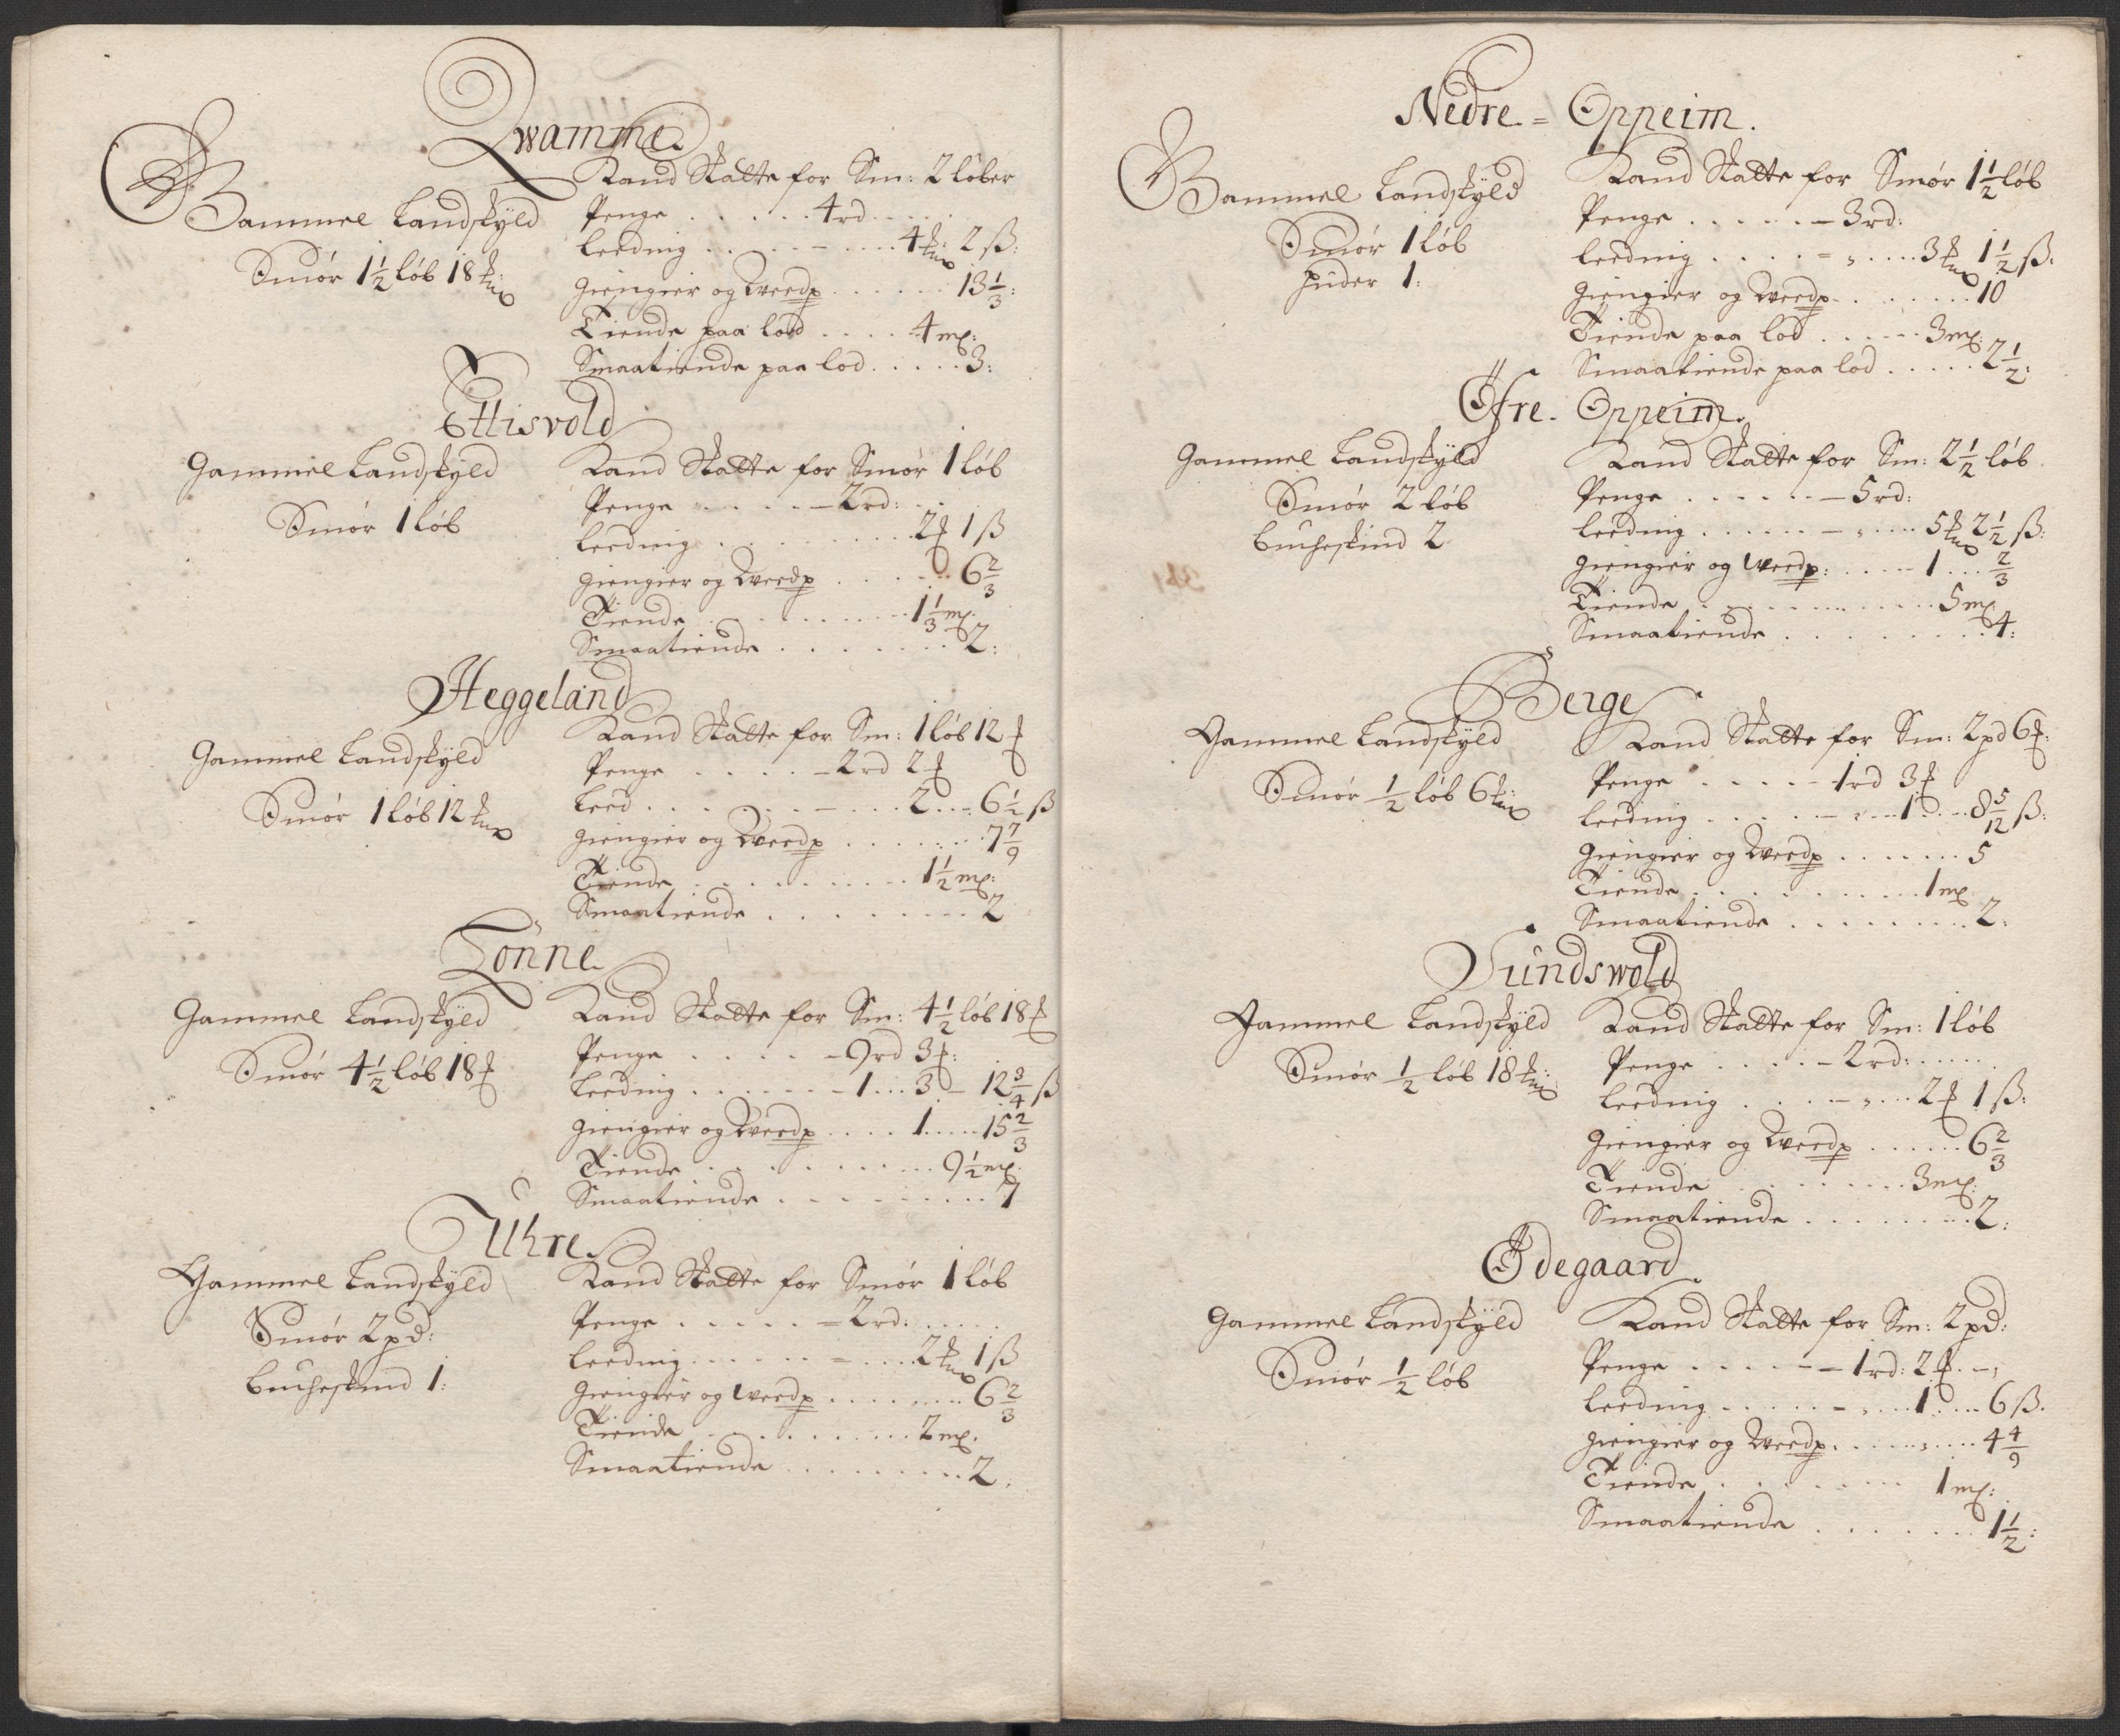 Qvamme
Gammel Landskyld
Smör 1½ löb 18 ℔
Kand Skatte for Sm: 2 löber
Penge . . . . . 4 rd . . . .
Leeding . . . . - . . . . 4 ℔: 2 ß:
Giengier og Weedp . . . . . . 13⅓:
Tiende paa lod . . . . 4 mk:
Smaatiende paa lod . . . . . 3:
Ettisvold
Gammel Landskyld
Smör 1 löb
Kand Skatte for Smör 1 löb
Penge . . . . . - 2 rd: . .
Leeding . . . . . . . . . 2 ℔ 1 ß
Giengier og Weedp . . . . . . 6⅔
Tiende . . . . . . . . . . 1⅓ mk:
Smaatiende . . . . . . . . 2:
Heggeland
Gammel Landskyld
Smör 1 löb 12 ℔
Kand Skatte for Sm: 1 löb 12 ℔
Penge . . . . - 2 rd 2 ℔
Leed . . . . . . - . . . 2 . . . 6½ ß
Giengier og Weedp . . . . . . . 7 7/9
Tiende . . . . . . . . . . 1½ mk:
Smaatiende . . . . . . . . . 2
Tönne
Gammel Landskyld
Smör 4½ löb 18 ℔
Kand Skatte for Sm: 4½ löb 18 ℔
Penge . . . . . - 9 rd 3 ℔:
Leeding . . . . . . - 1 . . . 3 - 12¾ ß
Giengier og Weedp . . . . 1 . . . . . 15⅔
Tiende . . . . . . . . . . . 9½ mk:
Smaatiende . . . . . . . . . . 7
Uhre
Gammel Landskyld
Smör 2 pd:
Buchskind 1:
Kand Skatte for Smör 1 löb
Penge . . . . . - 2 rd: . . . . .
Leeding . . . . . . - . . . . 2 ℔ 1 ß
Giengier og Weedp . . . . . . . 6⅔
Tiende . . . . . . . . . . 2 mk:
Smaatiende . . . . . . . . . 2:
Nedre = Oppeim.
Gammel Landskyld
Smör 1 löb
huder 1:
Kand Skatte for Smör 1½ löb
Penge . . . . . - 3 rd:
Leeding . . . . - „ . . . . 3 ℔ 1½ ß:
Giengier og Weedp . . . . . . . . 10
Tiende paa lod . . . . . 3 mk:
Smaatiende paa lod . . . . . 2½:
Öfre - Oppeim.
Gammel Landskyld
Smör 2 löb
Bucheskind 2
Kand Skatte for Sm: 2½ löb
Penge . . . . . . - 5 rd:
Leeding . . . . . . - „ . . . . 5 ℔ 2½ ß:
Giengier og Weedp: . . . . - 1 . . . ⅔
Tiende . . . . . . . . . . . . 5 mk
Smaatiende . . . . . . . . . 4:
Berge
Gammel Landskyld
Smör ½ löb 6 ℔
Kand Skatte for Sm: 2 pd 6 ℔:
Penge . . . . . - 1 rd 3 ℔
Leeding . . . . . - „ . . . 1 . . . . 8 5/12 ß:
Giengier og Weedp . . . . . . . 5
Tiende . . . . . . . . . . . 1 mk
Smaatiende . . . . . . . . . 2:
Sundswold
Gammel Landskyld
Smör ½ löb 18 ℔
Kand Skatte for Sm: 1 löb
Penge . . . . . - 2 rd: . . . . .
Leeding . . . . - „ . . . 2 ℔ 1 ß:
Giengier og Weedp . . . . . . 6⅔
Tiende . . . . . . . . . 3 mk:
Smaatiende . . . . . . . . 2:
Ödegaard
Gammel Landskyld
Smör ½ löb
Kand Skatte for Sm: 2 pd:
Penge . . . . . - 1 rd: 2 ℔. - „
Leeding . . . . . - „ . . . 1 . . . . 6 ß.
Giengier og Weedp . . . . . . „ . . . . 4 4/9
Tiende . . . . . . . . 1 mk:
Smaatiende . . . . . . . . 1½: